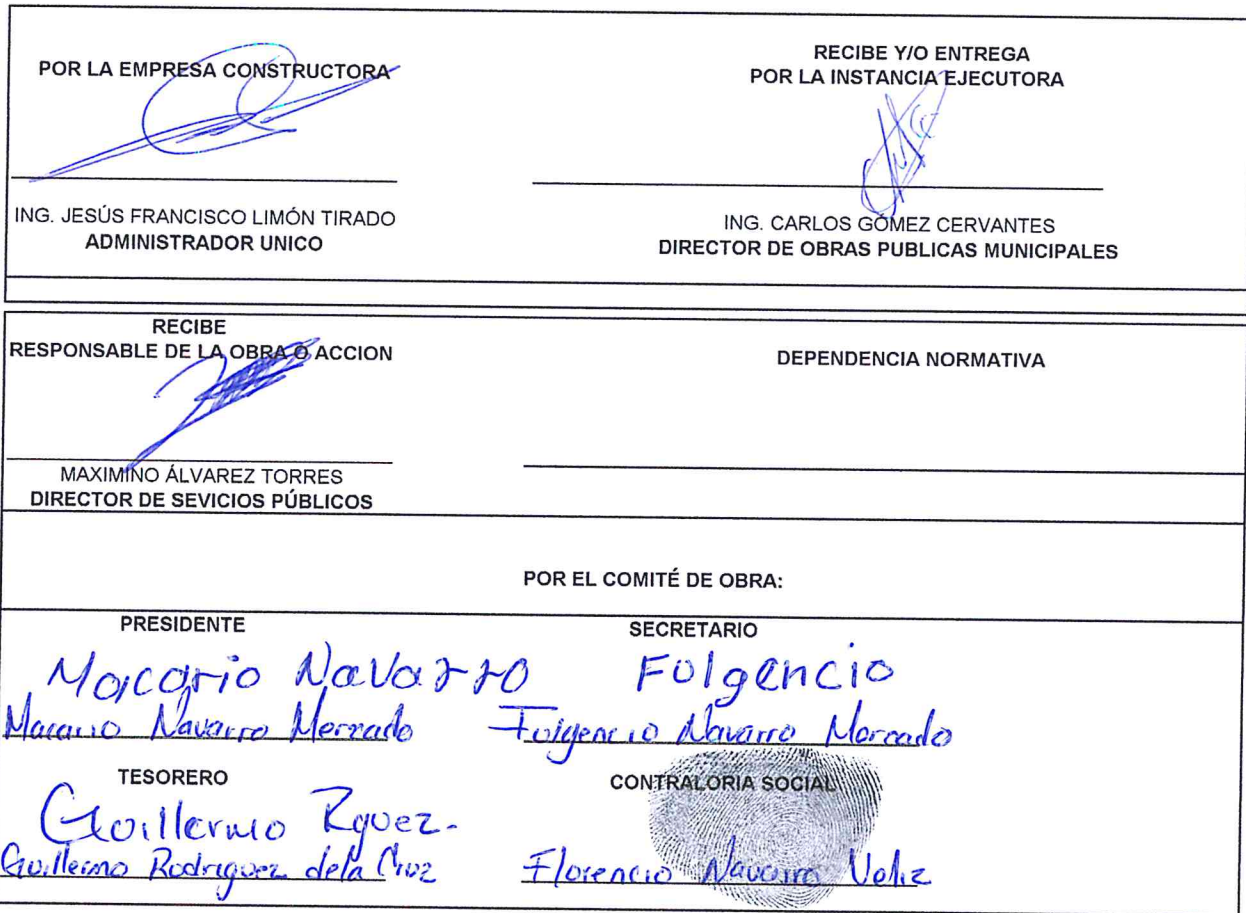 POR LA EMPRESA CONSTRUCTORA
ING. JESÚS FRANCISCO LIMÓN TIRADO
ADMINISTRADOR UNICO
RECIBE Y/O ENTREGA
POR LA INSTANCIA EJECUTORA
ING. CARLOS GÓMEZ CERVANTES
DIRECTOR DE OBRAS PUBLICAS MUNICIPALES
RECIBE
RESPONSABLE DE LA OBRA O ACCION
MAXIMINO ÁLVAREZ TORRES
DIRECTOR DE SEVICIOS PÚBLICOS
DEPENDENCIA NORMATIVA
POR EL COMITÉ DE OBRA:
PRESIDENTE
Macario Navarro
Macario Navarro Mercado
SECRETARIO
Fulgencio
Fulgencio Navarro Mercado
TESORERO
Guillermo Rguez.
Guillermo Rodriguez de la Cruz
CONTRALORIA SOCIAL
Florencio Navarro Veliz